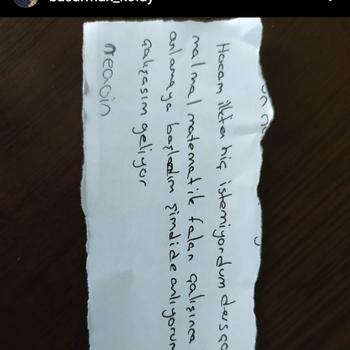 basarmak_kolay
Hocam ilkten hiç istemiyordum ders ça
mal mal matematik falan çalışınca
anlamaya başladım şimdide anlıyorum
çalışasım geliyor